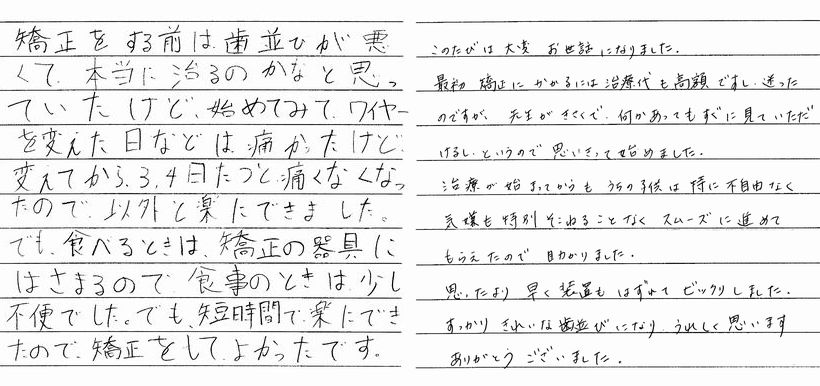 矯正をする前は、歯並びが悪
くて、本当に治るのかなと思っ
ていたけど、始めてみて、ワイヤー
を変えた日などは、痛かったけど、
変えてから、3、4日たつと、痛くなくなっ
たので、以外と楽にできました。
でも、食べるときは、矯正の器具に
はさまるので、食事のときは、少し
不便でした。でも、短時間で、楽にでき
たので、矯正をして、よかったです。
このたびは大変お世話になりました。
最初矯正にかかるには治療代も高額ですし、迷った
のですが、先生がきさくで、何かあってもすぐに見ていただ
けるし、というので思いきって始めました。
治療が始まってからもうちの子供は特に不自由なく
気嫌も特別そこねることなくスムーズに進めて
もらえたので助かりました。
思ったより早く装置もはずれてビックリしました。
すっかりきれいな歯並びになり、うれしく思います
ありがとうございました。